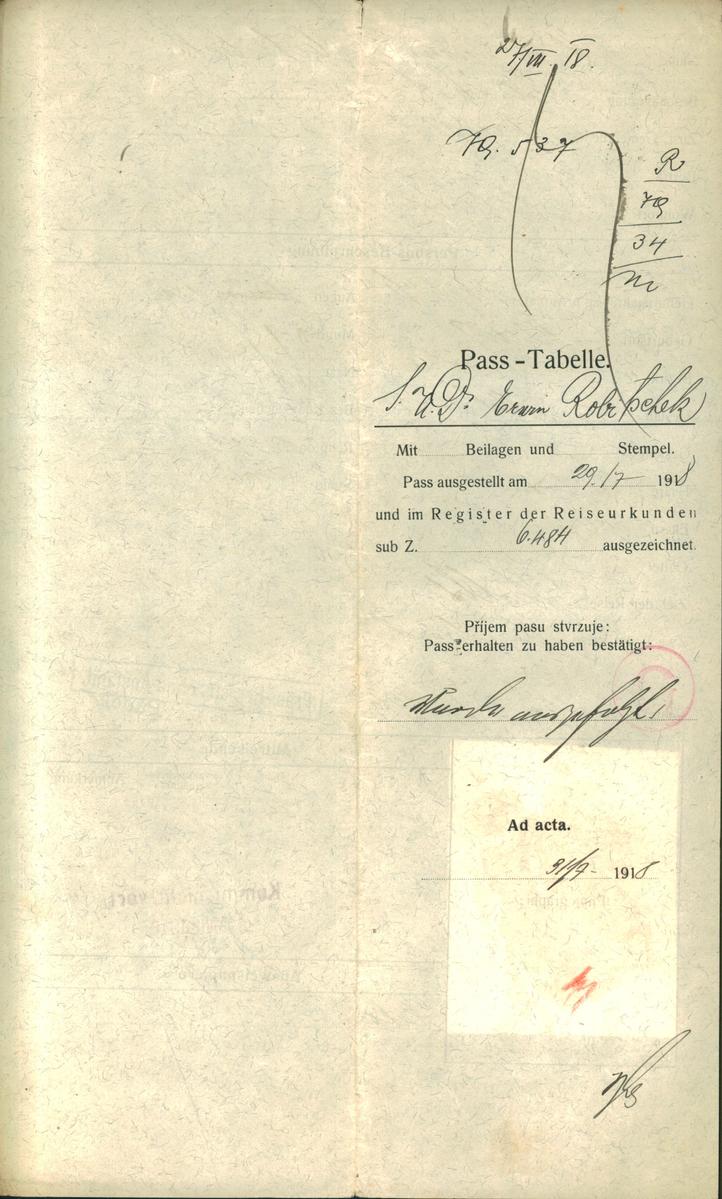 27/VII. 18.
R
79
34
Pass-Tabelle.
J. U. Dr. Erwin Robitschek
Mit Beilagen und Stempel.
Pass ausgestellt am 29./7 1918
und im Register der Reiseurkunden
sub Z. 6.484 ausgezeichnet.
Příjem pasu stvrzuje:
Pass erhalten zu haben bestätigt:
Wurde ausgefolgt.
Ad acta.
31/7 1918